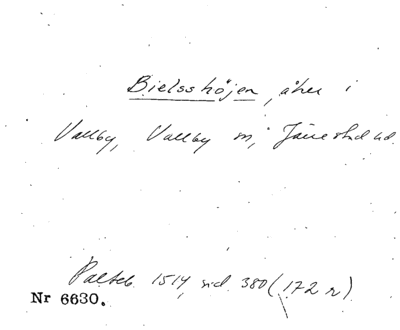 Bielsshöjen, åker i
Vallby, Vallby sn, Järrestad hd.
Palteb. 1514, sid. 380 (172 r)
Nr 6630.